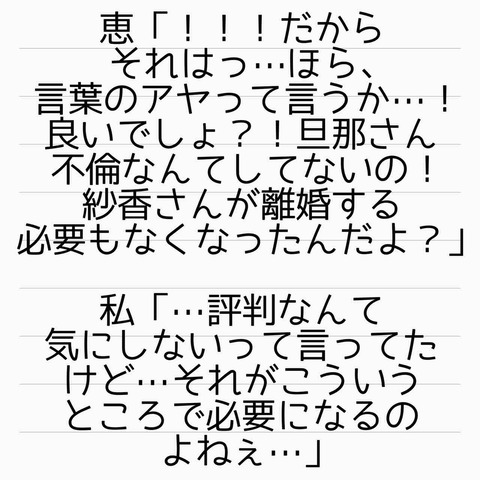 恵「！！！だから
それはっ…ほら、
言葉のアヤって言うか…！
良いでしょ？！旦那さん
不倫なんてしてないの！
紗香さんが離婚する
必要もなくなったんだよ？」
私「…評判なんて
気にしないって言ってた
けど…それがこういう
ところで必要になるの
よねぇ…」